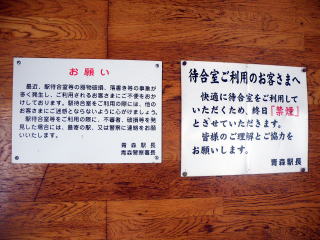 お願い
最近、駅待合室等の器物破損、落書き等の事象が
多く発生し、ご利用されるお客さまにご不便をおか
けしております。駅待合室をご利用の際には、他の
お客さまにご迷惑とならないように心がけましょう。
駅待合室等をご利用の際に、不審者、破損等を発
見した場合には、最寄の駅、又は警察に連絡をお願
いいたします。
青森駅長
青森警察署長
待合室ご利用のお客さまへ
快適に待合室をご利用して
いただくため、終日「禁煙」
とさせていただきます。
皆様のご理解とご協力を
お願いします。
青森駅長